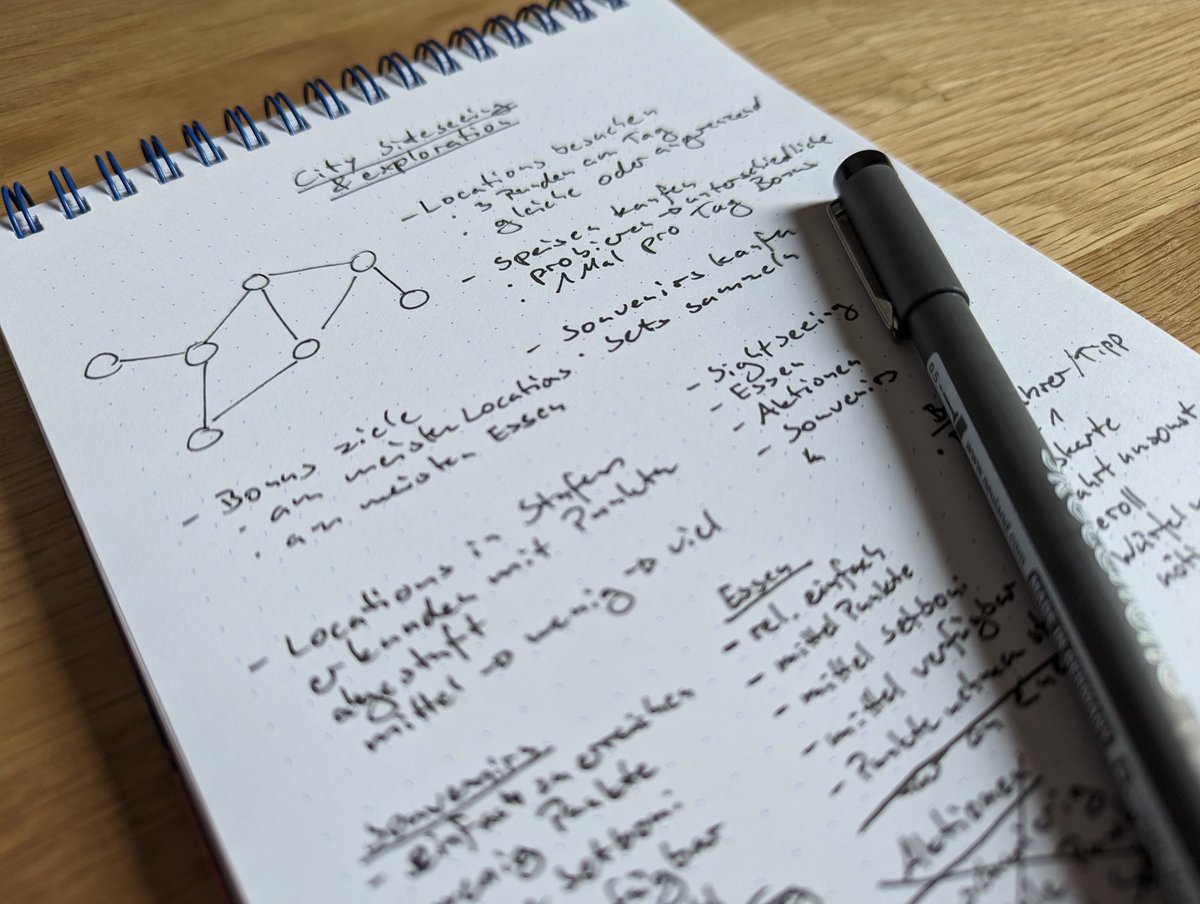 City Siteseeing
& exploration
- Locations besuchen
• 3 Runden am Tag
• gleiche oder angrenzend
- Speisen kaufen
• probieren → unterschiedliche
• 1 Mal pro Tag Bonus
- Souvenirs kaufen
• Sets sammeln
- Bonus ziele
• am meisten Locations
• am meisten Essen
- Sightseeing
- Essen
- Aktionen
- Souvenirs
- Locations in Stufen
erkunden mit Punkten
abgestuft
mittel → wenig → viel
Essen
- rel. einfach
- mittel Punkte
- mittel setboni
- mittel verfügbar
- Punkte nehmen
Souvenirs
- einfach zu erreichen
wenig Punkte
setboni
Aktionen
hrer/Tipp
1
karte
ahrt umsonst
eroll
Würfel
0.5
www.neuland.com